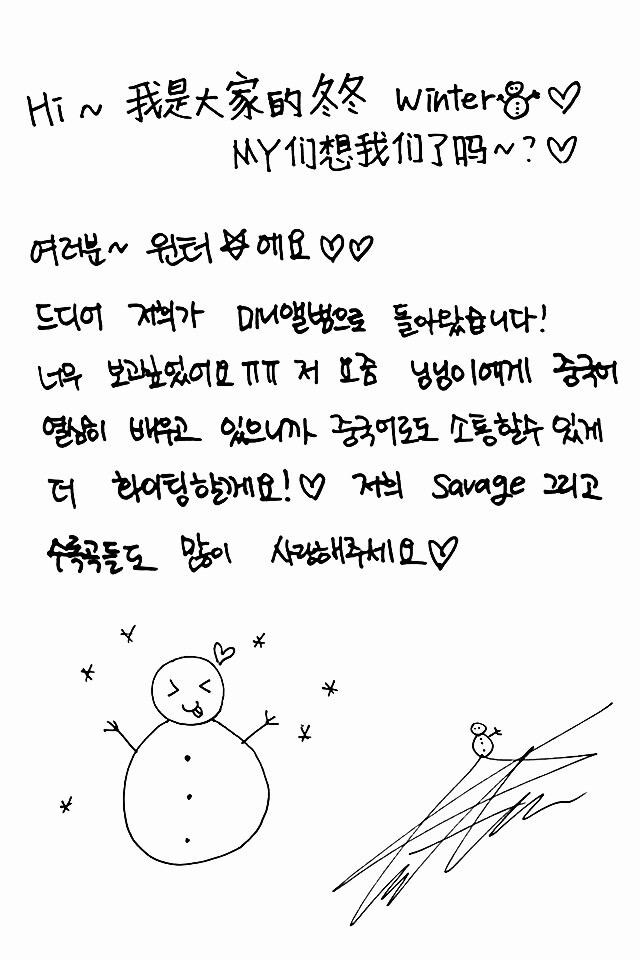 Hi ~ 我是大家的冬冬 Winter☃♡
MY们想我们了吗~?♡
여러분~ 윈터 에요♡♡
드디어 저희가 미니앨범으로 돌아왔습니다!
너무 보고싶었어요ㅠㅠ 저 요즘 닝닝이에게 중국어
열심히 배우고 있으니까 중국어로도 소통할수 있게
더 화이팅할게요!♡ 저희 Savage 그리고
수록곡들도 많이 사랑해주세요♡